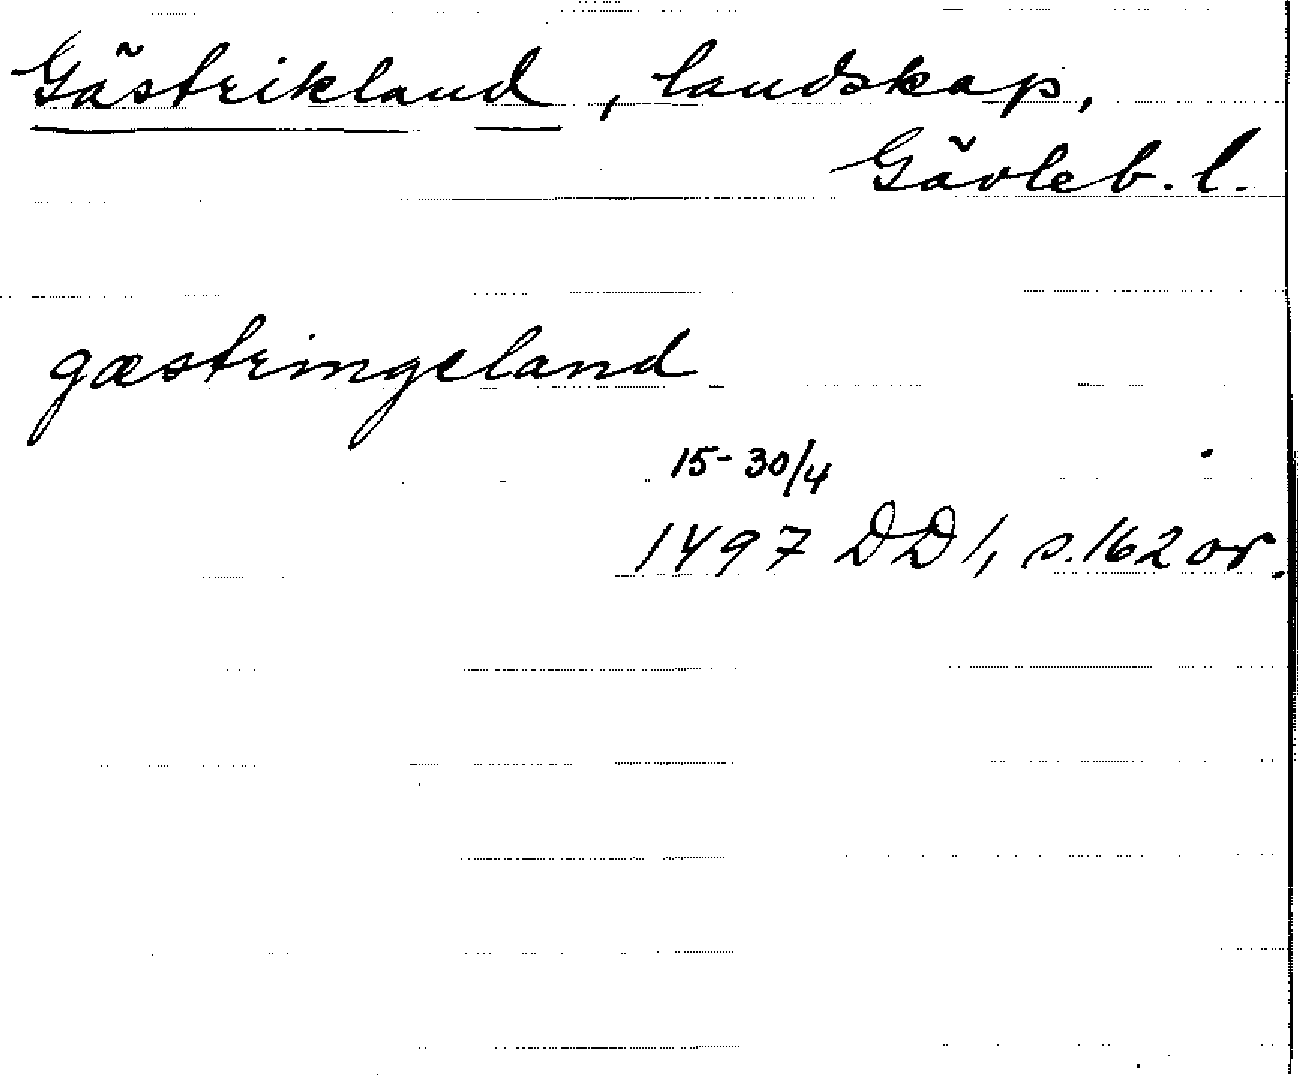 Gästrikland, landskap,
Gävleb. l.
gæstringeland
15-30/4
1497 DD 1, s. 162 or.